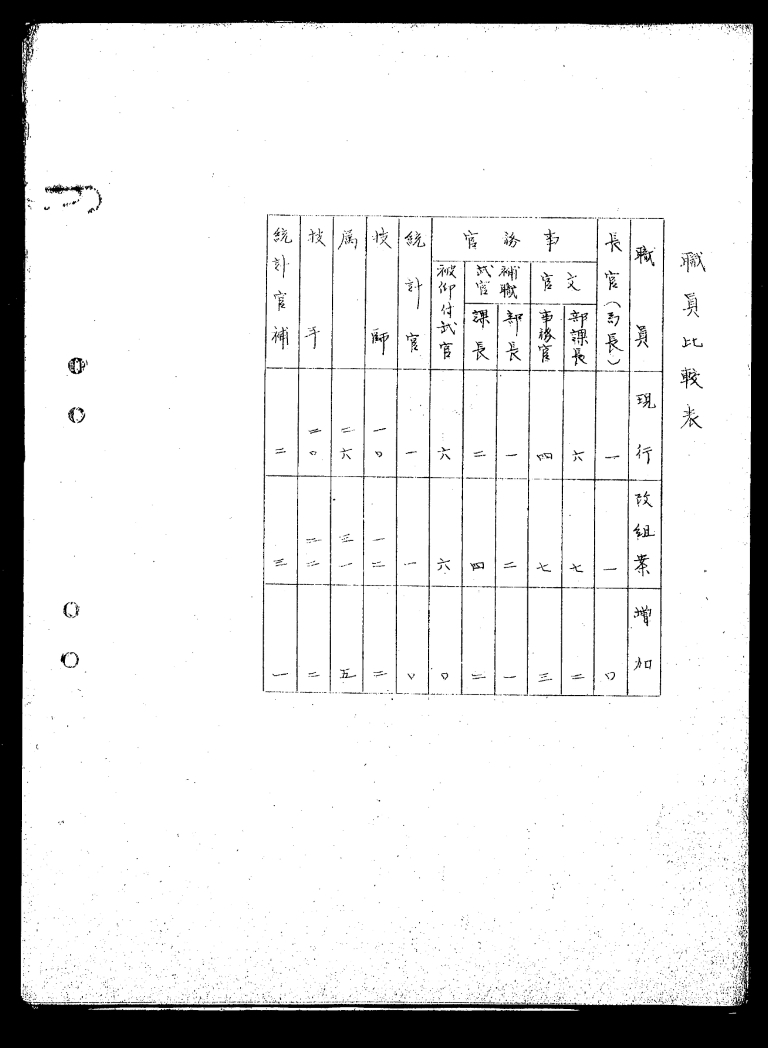 職員比較表
職員 現行 改組案 増加
長官(局長) 一 一 〇
事務官
文官
部課長 六 七 二
事務官 四 七 三
補職武官
部長 一 二 一
課長 二 四 二
被仰付武官 六 六 〇
統計官 一 一 〇
技師 一〇 一二 二
属 二六 三一 五
技手 二〇 二二 二
統計官補 二 三 一